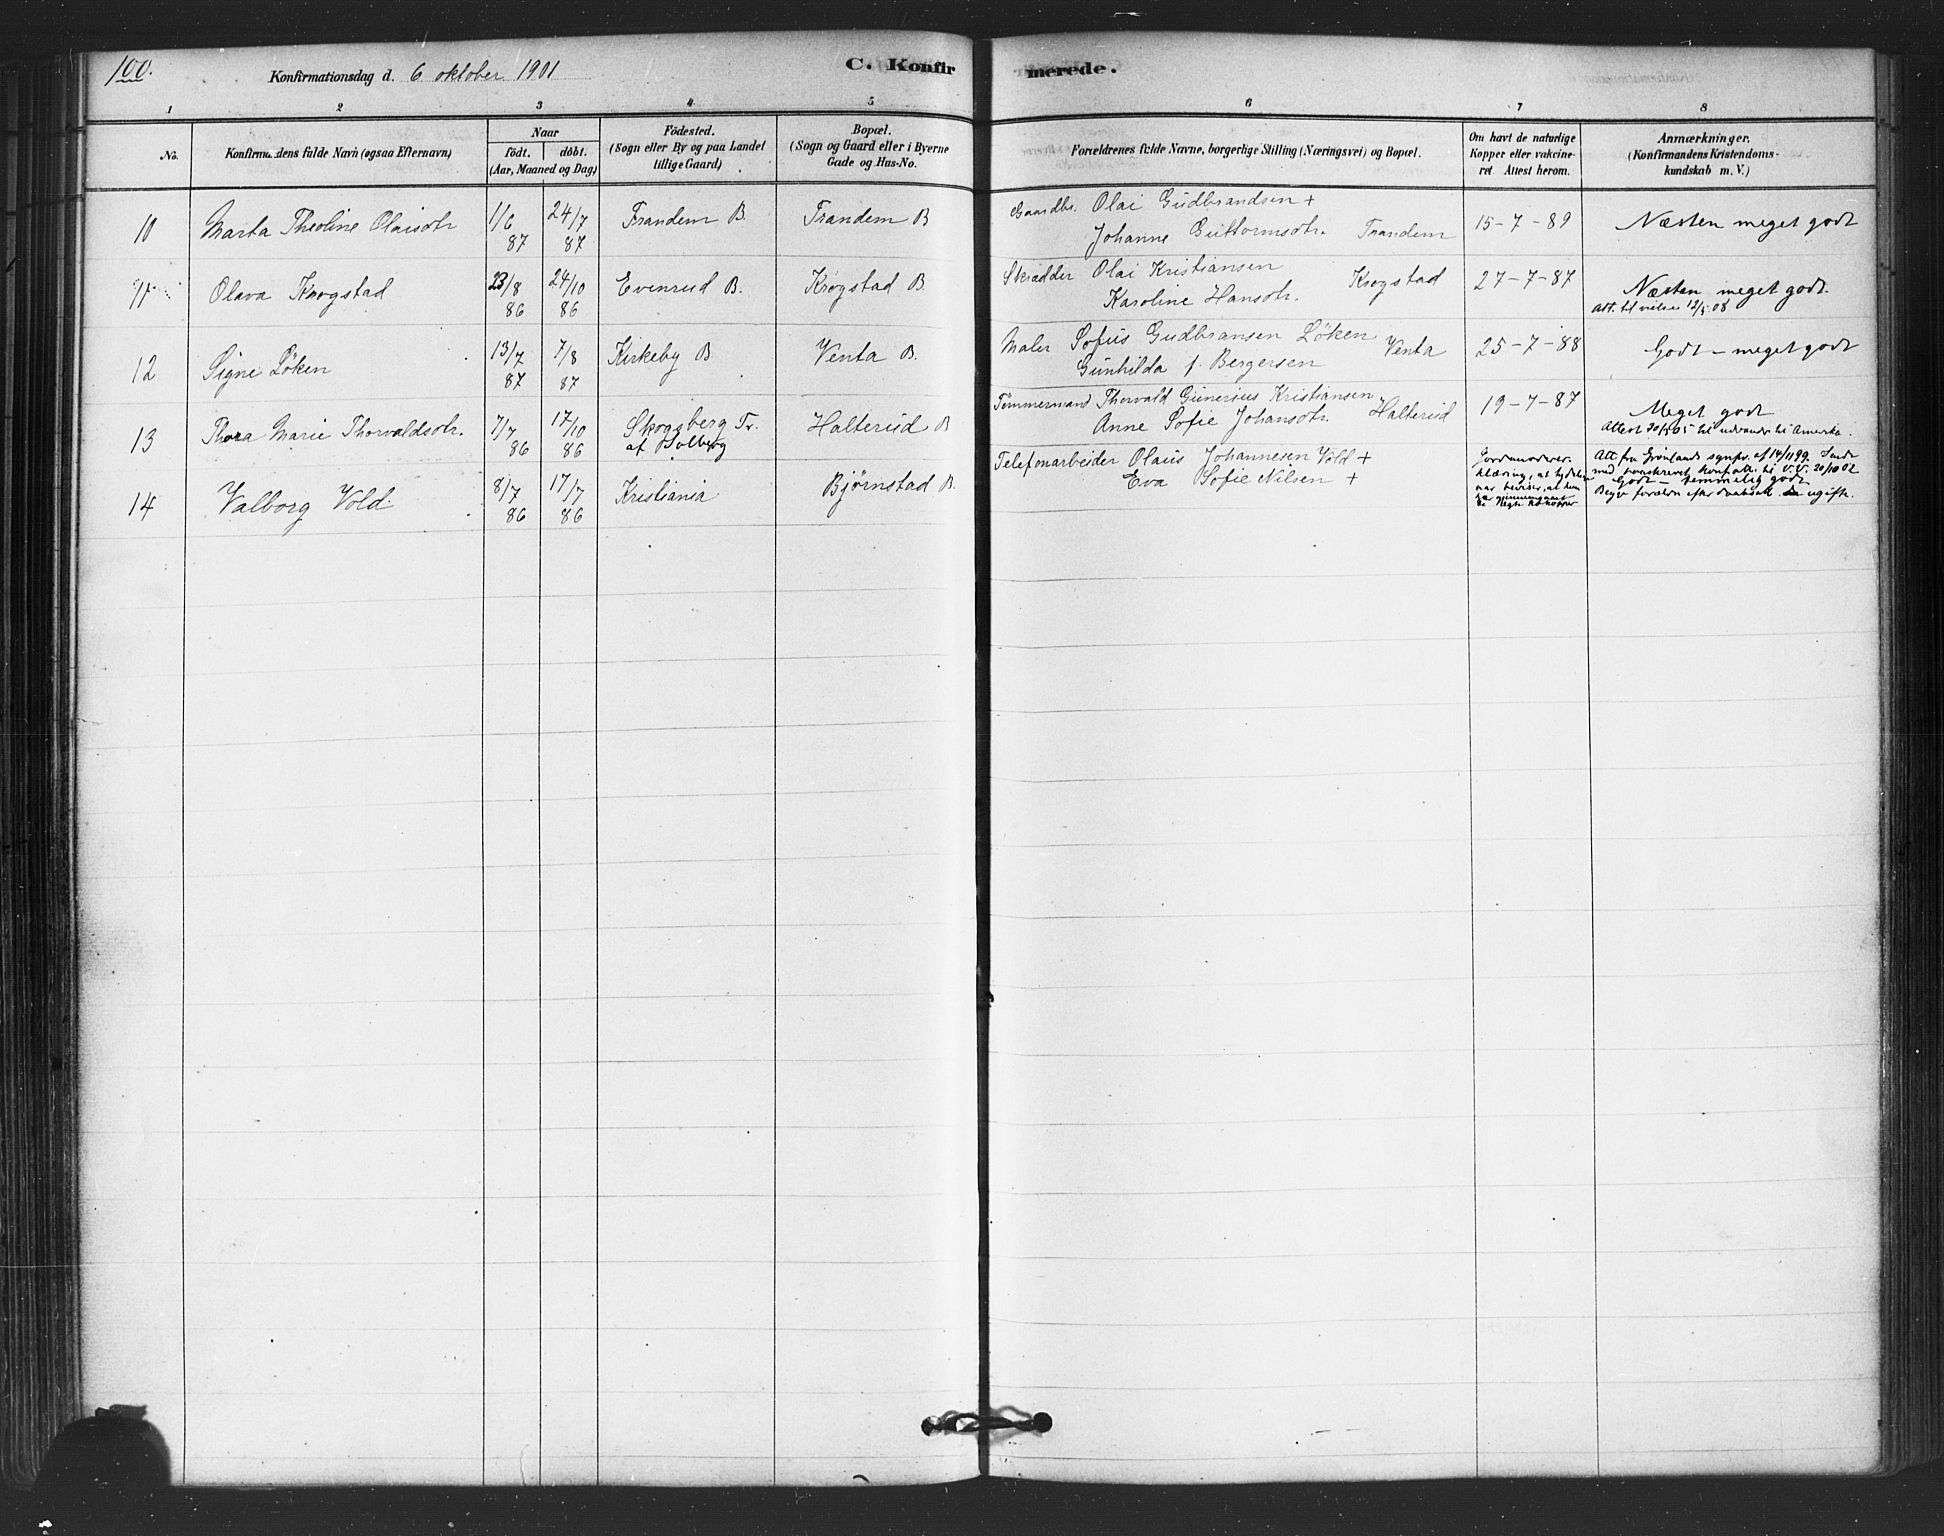 100.
Konfirmationsdag d. 6 oktober 1901
C. Konfirmerede.
1 2 3 4 5 6 7 8
No.
Konfirmandens fulde Navn (ogsaa Efternavn)
Naar
født. døbt.
(Aar, Maaned og Dag)
Födested.
(Sogn eller By og paa Landet
tillige Gaard)
Bopæl.
(Sogn og Gaard eller i Byerne
Gade og Hus-No.
Forældrenes fulde Navne, borgerlige Stilling (Næringsvei) og Bopæl.
Om havt de naturlige
Kopper eller vakcine-
ret. Attest herom.
Anmærkninger.
(Konfirmandens Kristendoms-
kundskab m. V.)
10 Marta Theoline Olaisdtr 1/6 87 24/7 87 Trandem B. Trandem B
Gaardbr. Olai Gudbrandsen +
Johanne Guttormsdtr. Trandem
15-7-89 Næsten meget godt
11 Olava Krogstad 23/8 86 24/10 86 Evenrud B. Krogstad B
Skrædder Olai Kristiansen
Karoline Hansdtr. Krogstad
27-7-87 Næsten meget godt.
Att. til vielse 12/5 08
12 Signe Løken 13/7 87 7/8 87 Kirkeby B Venta B.
Maler Sofus Gudbransen Løken
Gunhilda f. Bergersen Venta
25-7-88 Godt - meget godt
13 Thora Marie Thorvaldsdtr. 7/7 86 17/10 86 Skogsberg Tr.
af Solberg
Halterud B
Tømmermand Thorvald Gunerius Kristiansen
Anne Sofie Johansdtr. Halterud
19-7-87 Meget godt
Attest 20/5 05 til udvandr. til Amerika.
14 Valborg Vold 8/7 86 17/7 86 Kristiania Bjørnstad B.
Telefonarbeider Olaus Johannesen Vold +
Eva Sofie Nilsen +
Jordemoderer-
klæring, at tydelige
ar beviser, at hun
har gjennemgaaet
de kokopper
Att. fra Grønlands sognpr. af 14/11 99.
20/10 02
Godt - temmelig godt
ugifte.